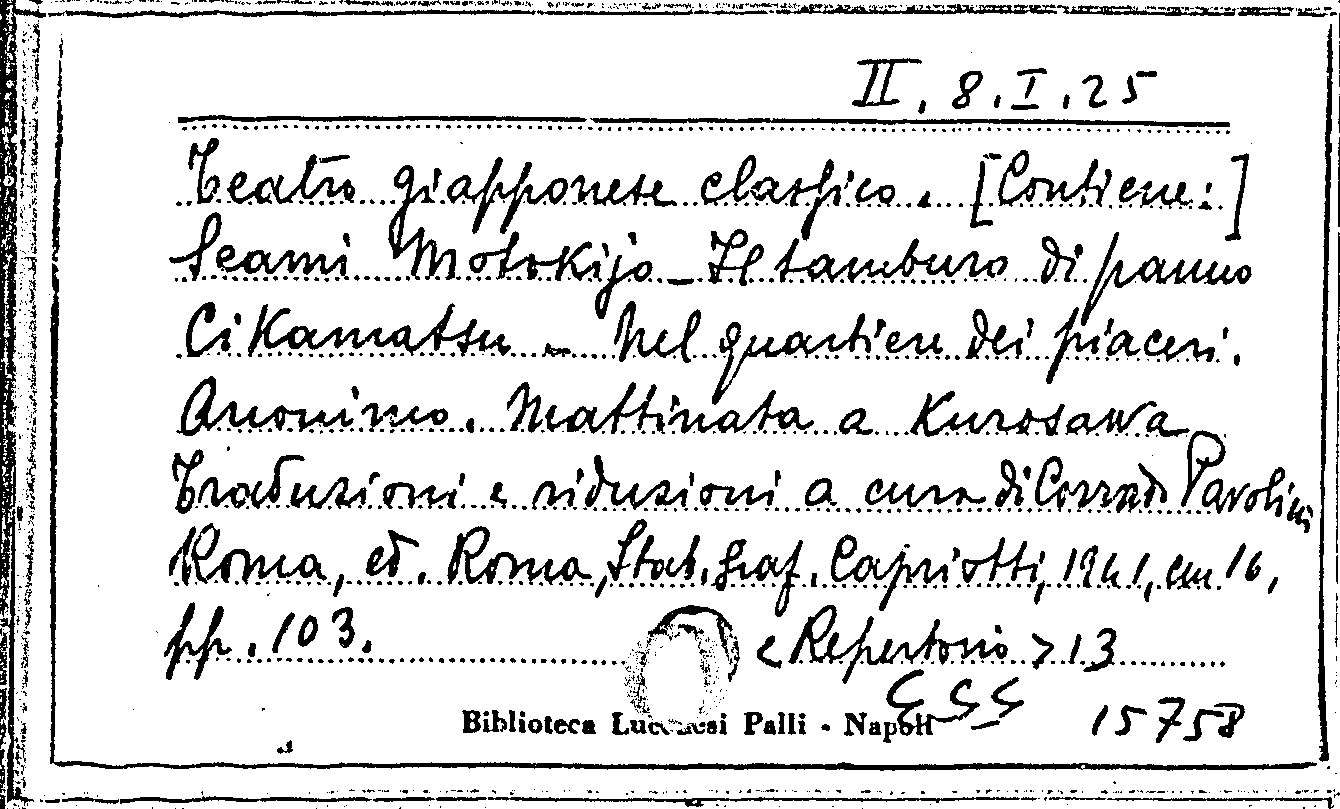 II. 8. I. 25
Teatro giapponese classico. [Contiene:]
Seami Motokijo - Il tamburo di panno
Cikamatsu - Nel quartiere dei piaceri.
Anonimo. Mattinata a Kurosawa
Traduzioni e riduzioni a cura di Corrado Pavolini
Roma, ed. Roma, Stab. Graf. Capriotti, 1941, cm 16,
pp. 103.
< Repertorio > 13
Biblioteca Lucchesi Palli - Napoli
15758